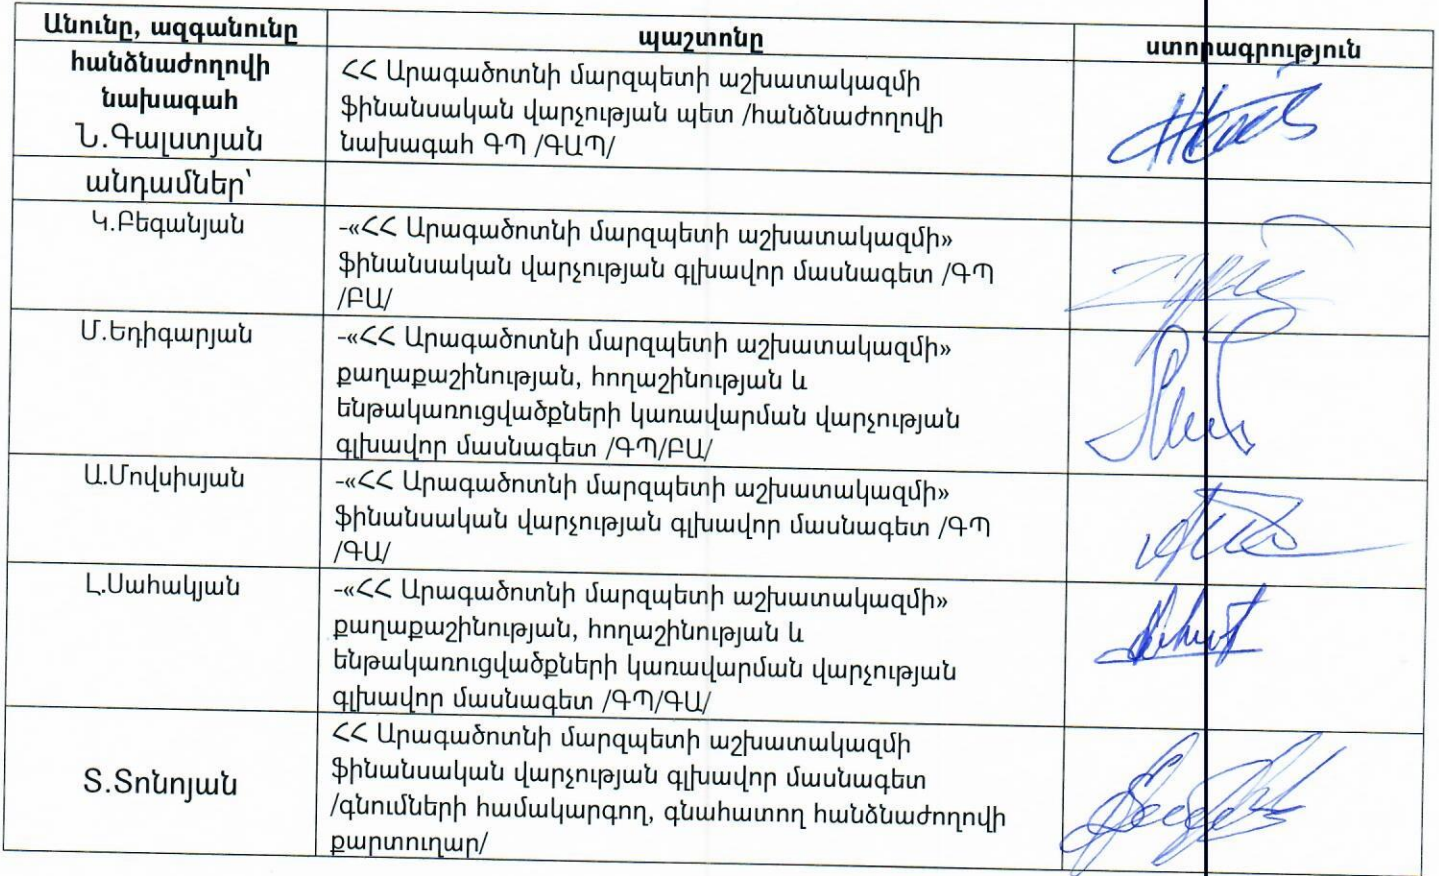 Անունը, ազգանունը
պաշտոնը
ստորագրություն
հանձնաժողովի
նախագահ
Ն.Գալստյան
ՀՀ Արագածոտնի մարզպետի աշխատակազմի
ֆինանսական վարչության պետ /հանձնաժողովի
նախագահ ԳՊ /ԳԱՊ/
անդամներ՝
Կ.Բեգանյան
-«ՀՀ Արագածոտնի մարզպետի աշխատակազմի»
ֆինանսական վարչության գլխավոր մասնագետ /ԳՊ
/ԲԱ/
Մ.Եդիգարյան
-«ՀՀ Արագածոտնի մարզպետի աշխատակազմի»
քաղաքաշինության, հողաշինության և
ենթակառուցվածքների կառավարման վարչության
գլխավոր մասնագետ /ԳՊ/ԲԱ/
Ա.Մովսիսյան
-«ՀՀ Արագածոտնի մարզպետի աշխատակազմի»
ֆինանսական վարչության գլխավոր մասնագետ /ԳՊ
/ԳԱ/
Լ.Սահակյան
-«ՀՀ Արագածոտնի մարզպետի աշխատակազմի»
քաղաքաշինության, հողաշինության և
ենթակառուցվածքների կառավարման վարչության
գլխավոր մասնագետ /ԳՊ/ԳԱ/
Տ.Տոնոյան
ՀՀ Արագածոտնի մարզպետի աշխատակազմի
ֆինանսական վարչության գլխավոր մասնագետ
/գնումների համակարգող, գնահատող հանձնաժողովի
քարտուղար/